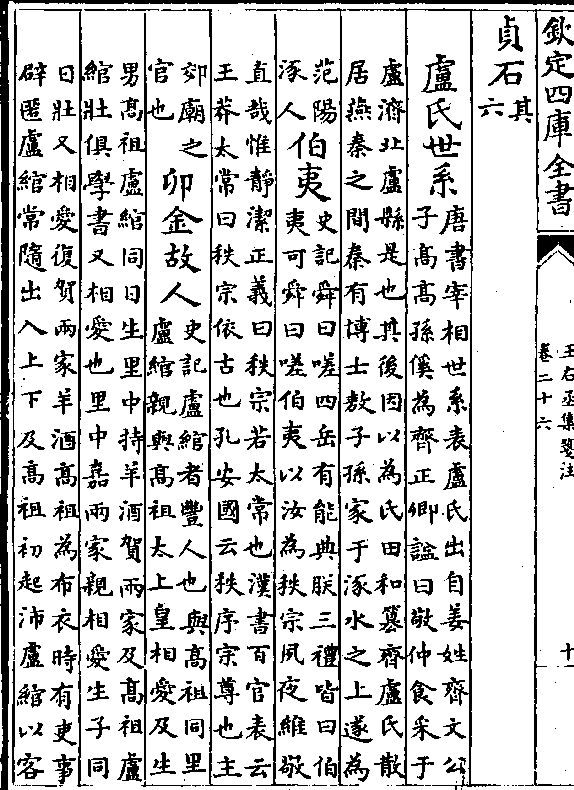 欽定四庫全書
王右丞集箋注
卷二十六
十
貞石其六
盧氏世系
唐書宰相世系表盧氏出自姜姓齊文公
子髙髙孫傒為齊正卿諡曰敬仲食采于
盧濟北盧縣是也其後因以為氏田和簒齊盧氏散
居燕秦之間秦有博士敖子孫家于涿水之上遂為
范陽
涿人
伯夷
史記舜曰嗟四岳有能典朕三禮皆曰伯
夷可舜曰嗟伯夷以汝為秩宗夙夜維敬
直哉惟靜潔正義曰秩宗若太常也漢書百官表云
王莽太常曰秩宗依古也孔安國云秩序宗尊也主
郊廟之
官也
卯金故人
史記盧綰者豐人也與髙祖同里
盧綰親與髙祖太上皇相愛及生
男髙祖盧綰同日生里中持羊酒賀兩家及髙祖盧
綰壯俱學書又相愛也里中嘉兩家親相愛生子同
日壯又相愛復賀兩家羊酒髙祖為布衣時有吏事
辟匿盧綰常隨出入上下及髙祖初起沛盧綰以客